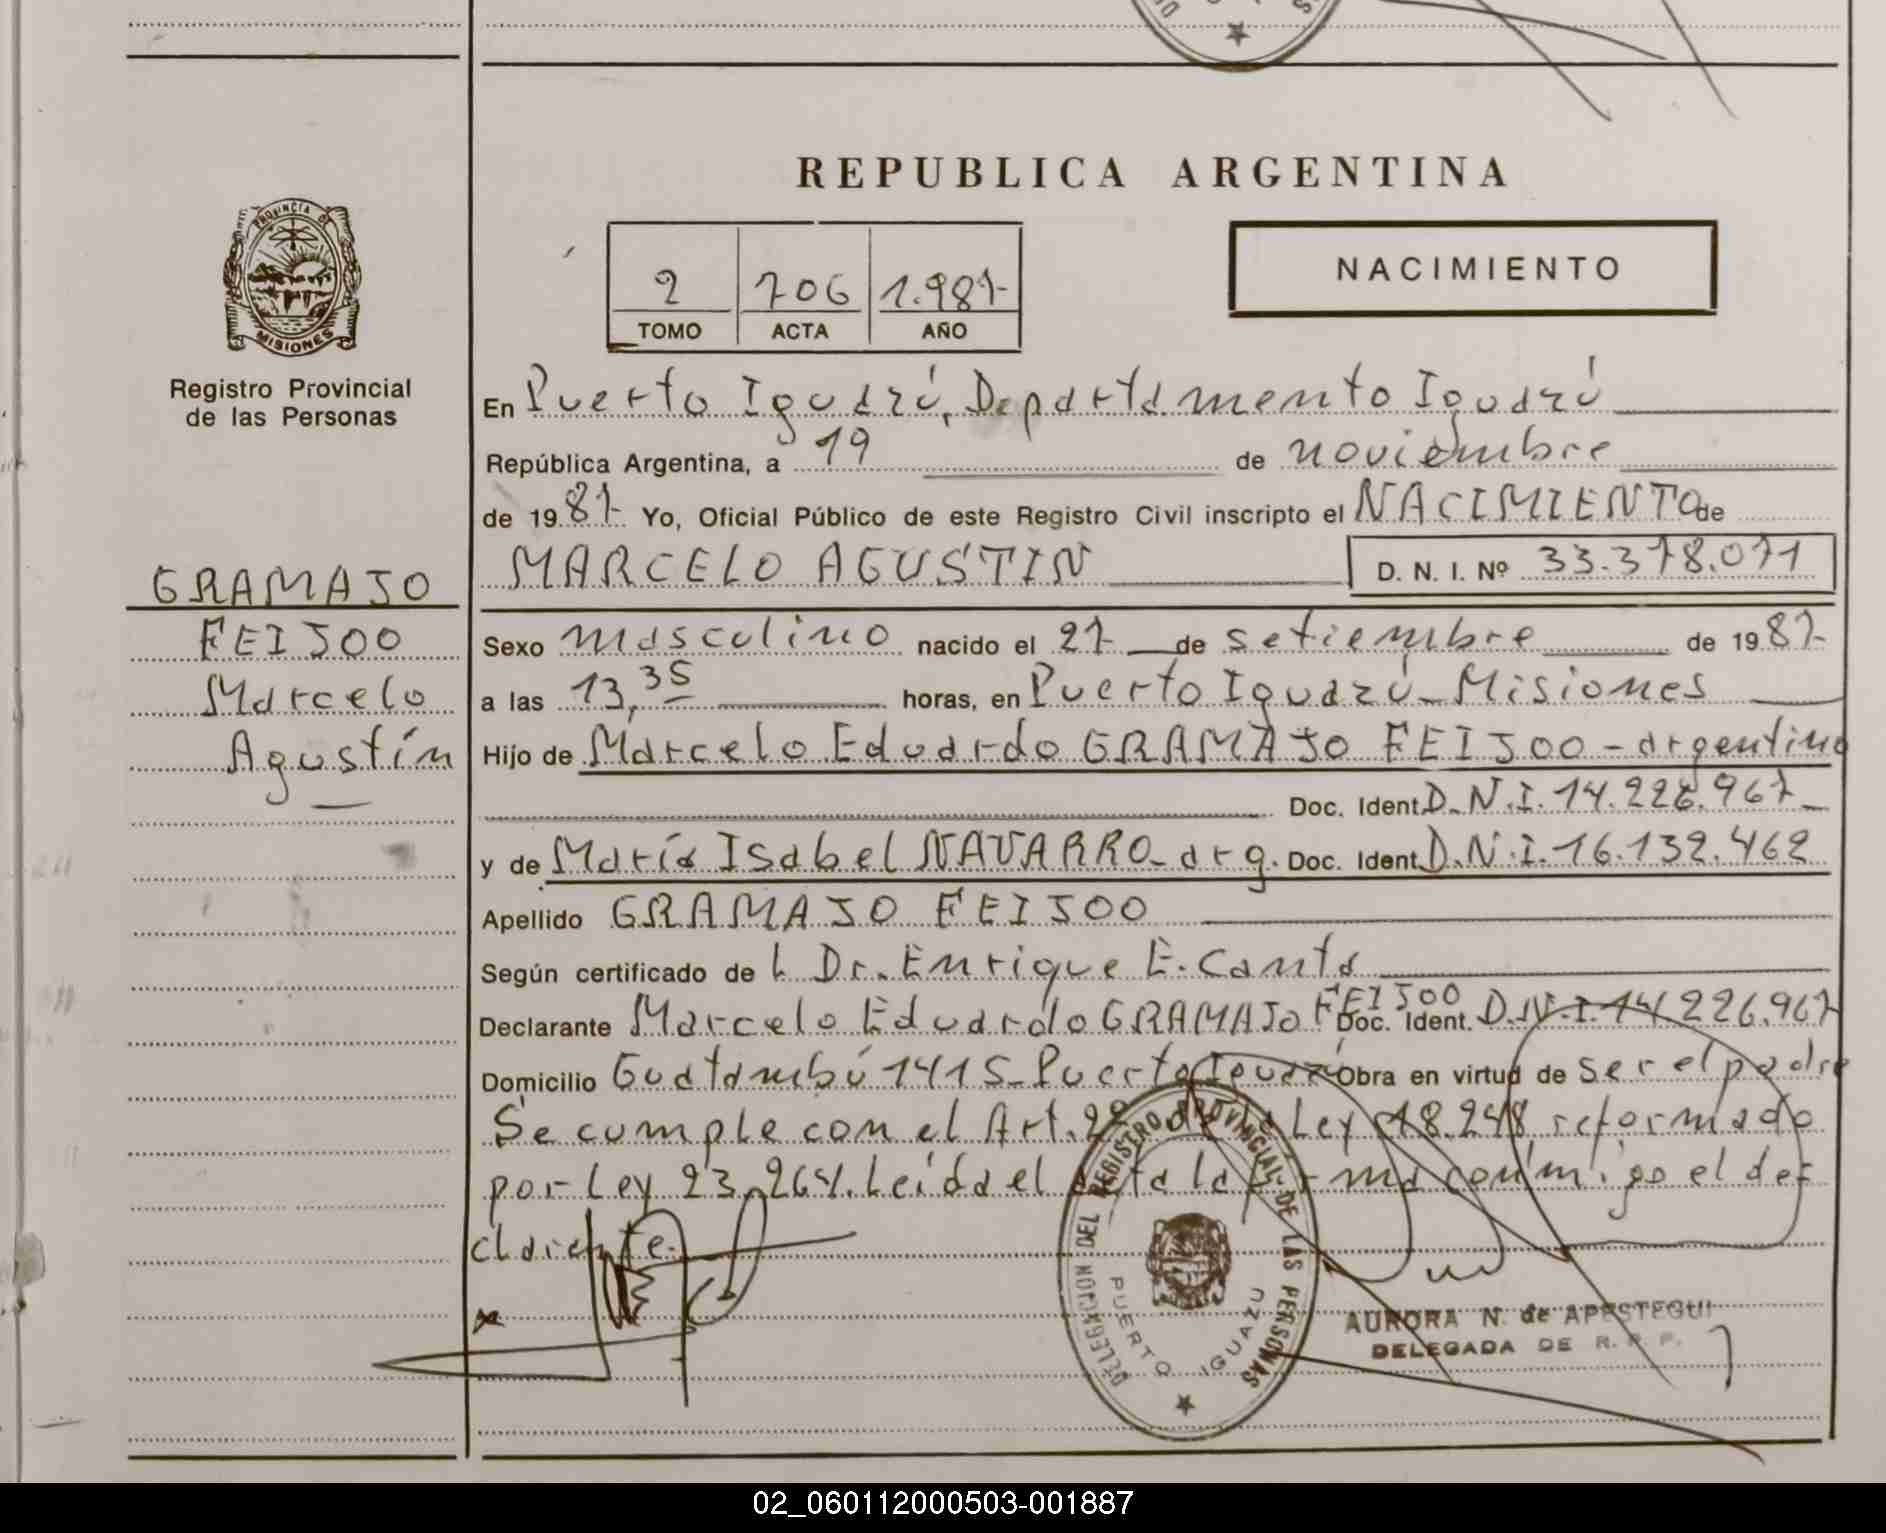 REPUBLICA ARGENTINA
PROVINCIA D
MISIONES
Registro Provincial
de las Personas
2 706 1.987
TOMO ACTA AÑO
NACIMIENTO
En Puerto Iguazú, Departamento Iguazú
República Argentina, a 19 de noviembre
de 1987 Yo, Oficial Público de este Registro Civil inscripto el NACIMIENTO de
MARCELO AGUSTIN D. N. I. Nº 33.378.071
GRAMAJO
FEIJOO
Marcelo
Agustín
Sexo masculino nacido el 27 de setiembre de 1987
a las 13,35 horas, en Puerto Iguazú - Misiones
Hijo de Marcelo Eduardo GRAMAJO FEIJOO - argentino
Doc. Ident. D.N.I. 14.226.967
y de María Isabel NAVARRO - arg. Doc. Ident. D.N.I. 16.132.462
Apellido GRAMAJO FEIJOO
Según certificado de l Dr. Enrique E. Canta
Declarante Marcelo Eduardo GRAMAJO FEIJOO Doc. Ident. D.N.I. 14.226.967
Domicilio Guatambú 1415 - Puerto Iguazú Obra en virtud de ser el padre
Se cumple con el Art. Ley 18.248 reformado
por Ley 23.264. Leída el acta la firma conmigo el de=
clarante.
DELEGACION DEL REGISTRO PROVINCIAL DE LAS PERSONAS
PUERTO IGUAZU
AURORA N. de APESTEGUI
DELEGADA DE R. P. P.
02_060112000503-001887